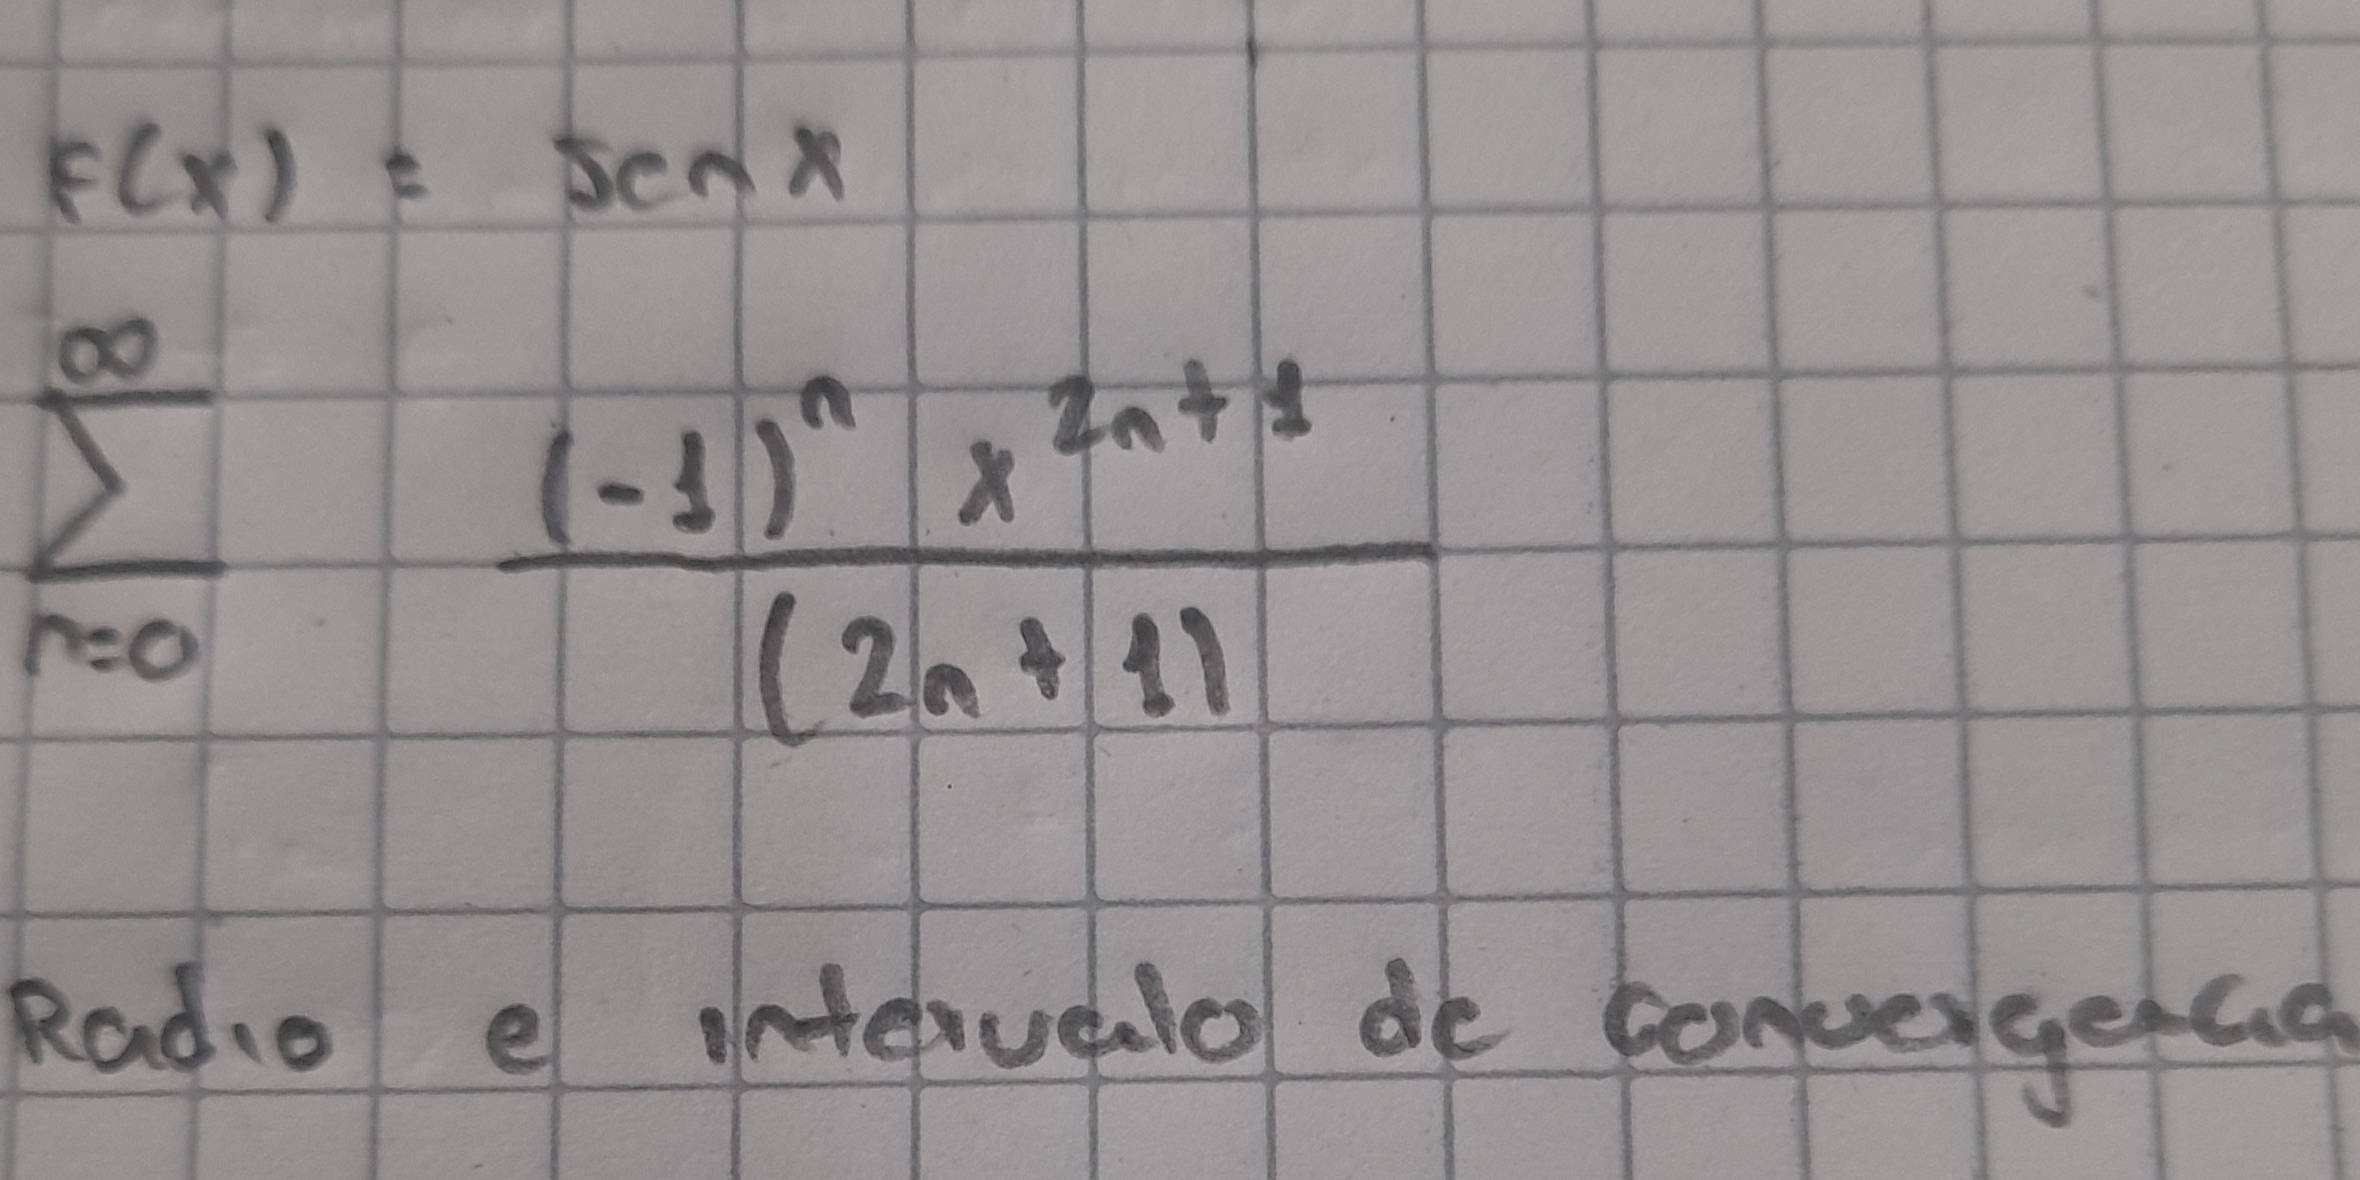 F(x) = sen x
∞
∑ (-1)^n x^{2n+1}
n=0 (2n+1)
Radio e intervalo de convergencia